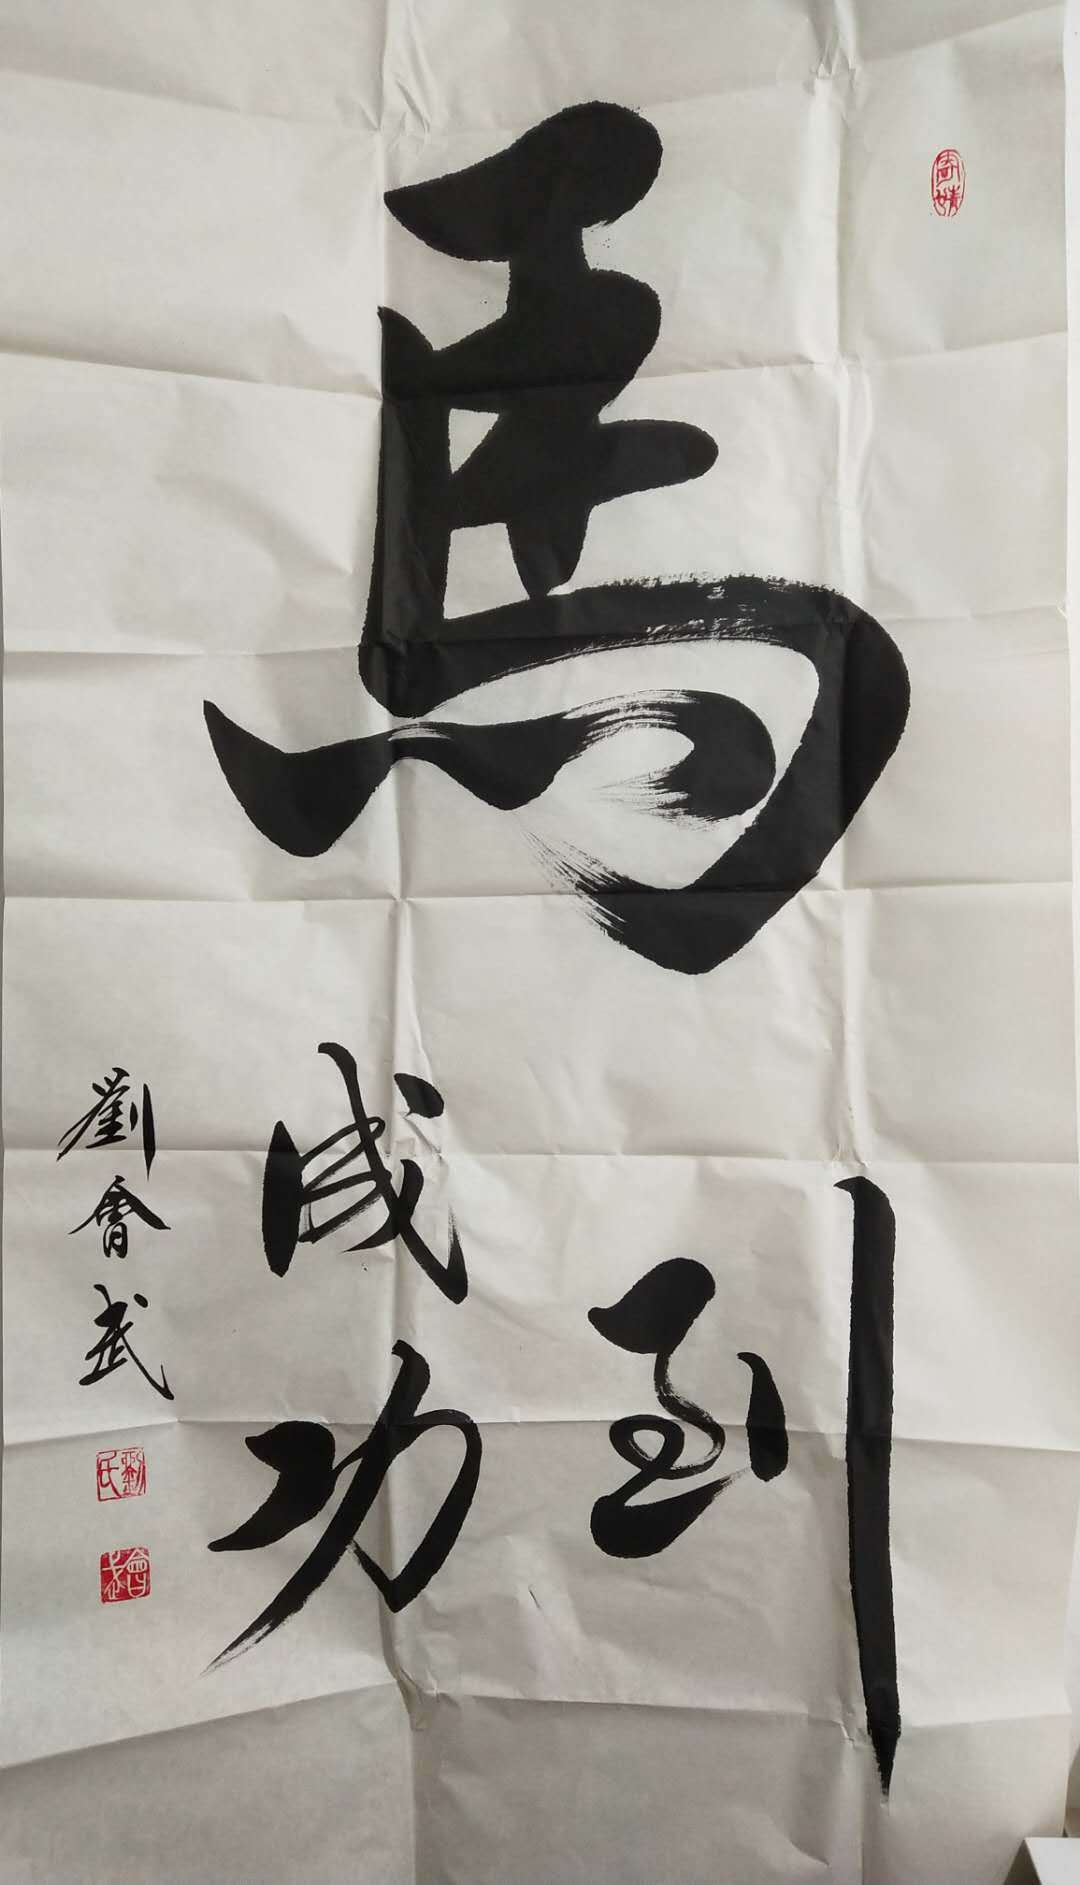 馬
到
成功
劉會武
劉氏
會武